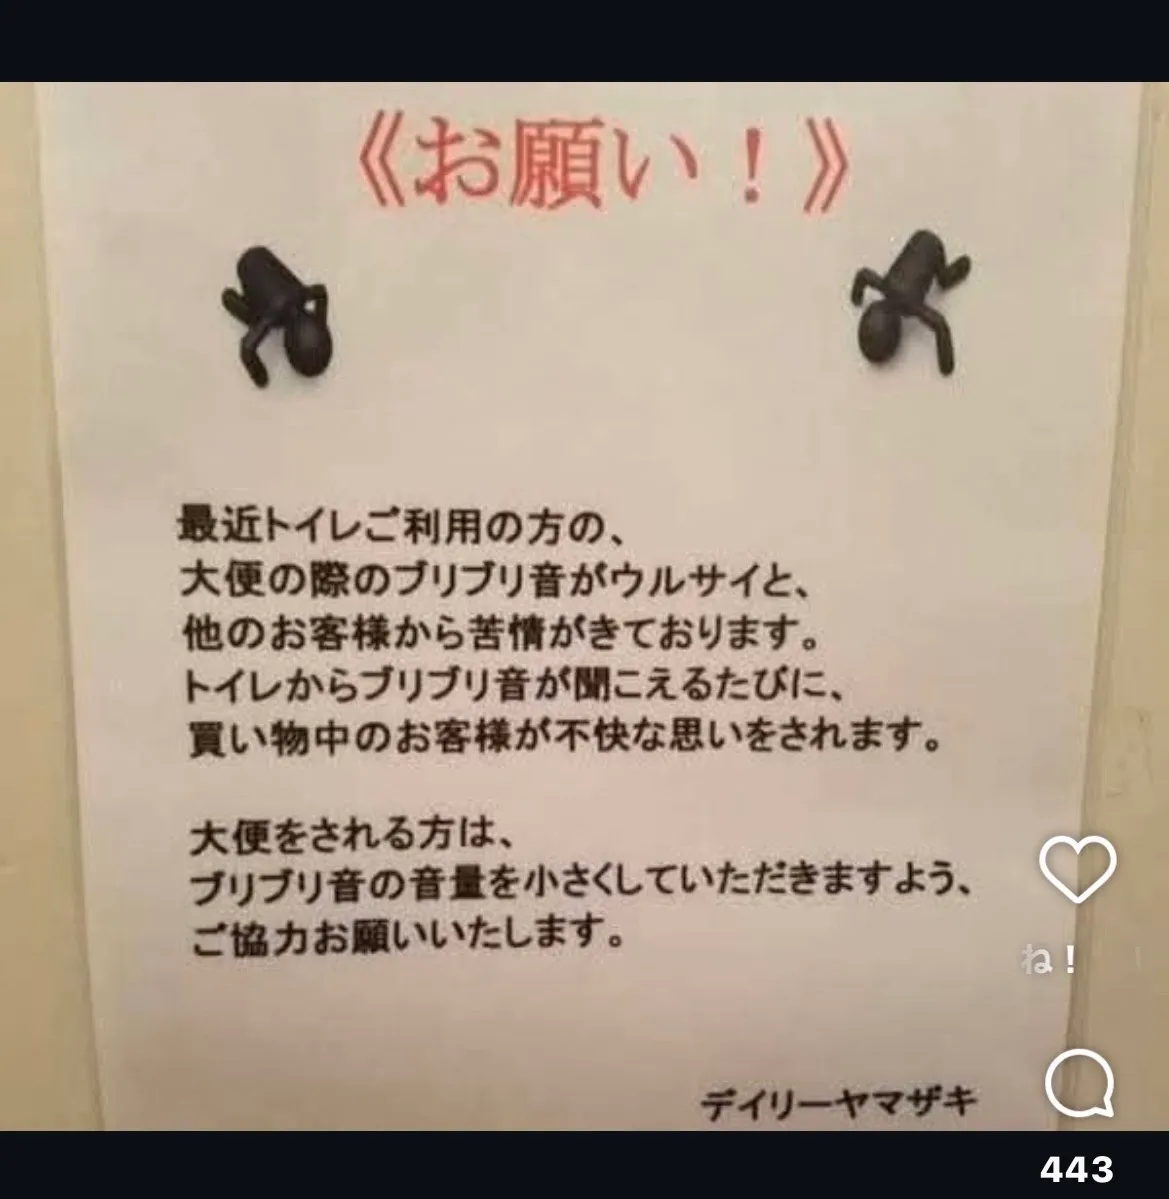 《お願い！》
最近トイレご利用の方の、
大便の際のブリブリ音がウルサイと、
他のお客様から苦情がきております。
トイレからブリブリ音が聞こえるたびに、
買い物中のお客様が不快な思いをされます。
大便をされる方は、
ブリブリ音の音量を小さくしていただきますよう、
ご協力お願いいたします。
ね！
デイリーヤマザキ
443